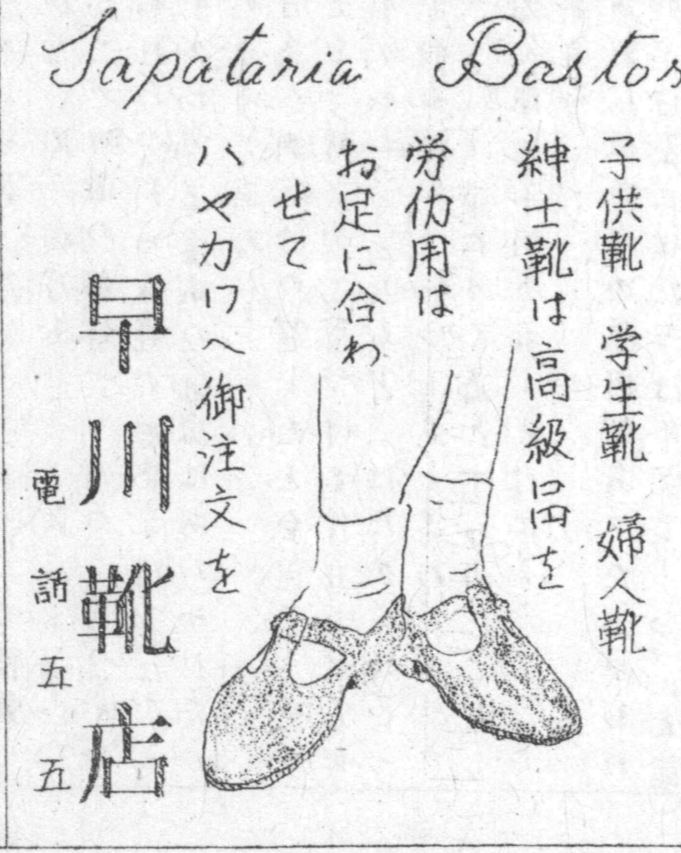 Sapataria Bastos
子供靴、学生靴 婦人靴
紳士靴は高級品を
労仂用は
お足に合わ
せて
ハヤカワへ御注文を
早川靴店
電話五五